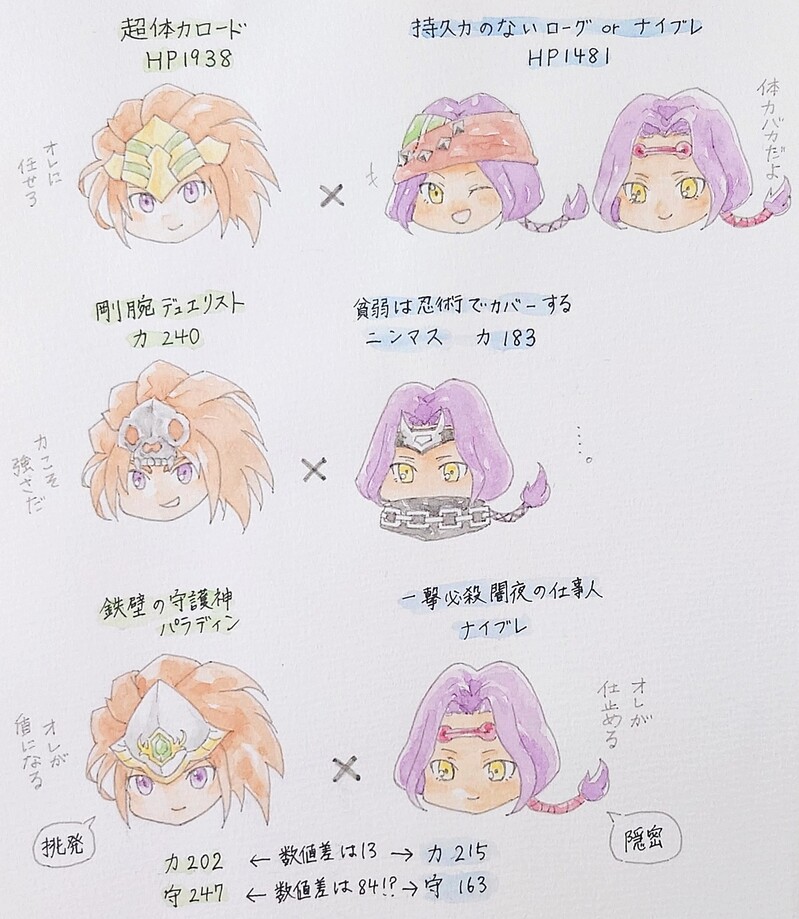 超体力ロード
HP1938
持久力のないローグ or ナイブレ
HP1481
オレに
任せろ
体力バカだよ
剛腕デュエリスト
力 240
貧弱は忍術でカバーする
ニンマス 力 183
力こそ
強さだ
・・・・。
鉄壁の守護神
パラディン
一撃必殺闇夜の仕事人
ナイブレ
オレが
盾になる
オレが
仕止める
挑発
隠密
力202 ← 数値差は13 → 力 215
守247 ← 数値差は84!? → 守 163